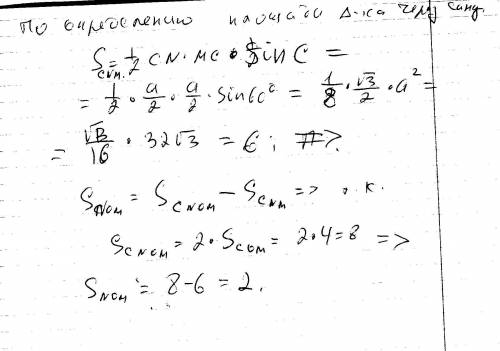 По определению площади Δ-ка через синус.
S_CNM = 1/2 CN · MC · sin C =
= 1/2 · a/2 · a/2 · sin 60° = 1/8 · √3/2 · a² =
= √3/16 · 32√3 = 6; =>.
S_NOM = S_CNOM − S_CNM => т.к.
S_CNOM = 2 · S_COM = 2 · 4 = 8 =>
S_NOM = 8 − 6 = 2.